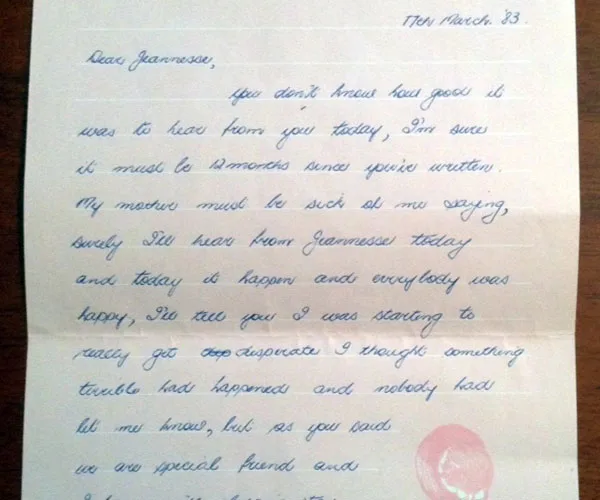 17th March. '83.
Dear Jeannesse,
you don't know how good it
was to hear from you today, I'm sure
it must be 12 months since you've written.
My mother must be sick of me saying,
surely I'll hear from Jeannesse today
and today it happen and everybody was
happy, I'll tell you I was starting to
really get desperate I thought something
terrible had happened and nobody had
let me know, but as you said
we are special friend and